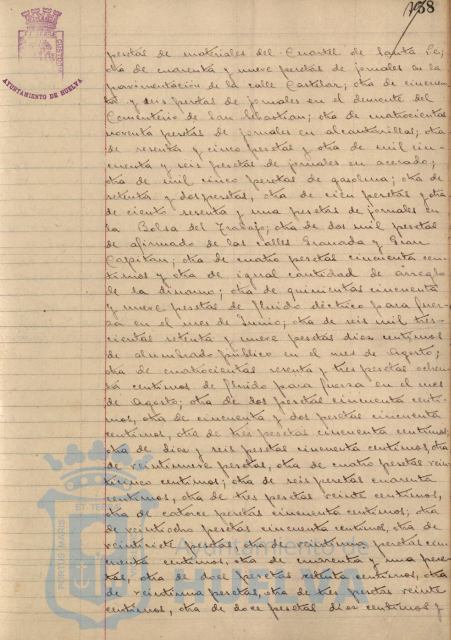 188
CUSTODIA
AYUNTAMIENTO DE HUELVA
pesetas de materiales del Cuartel de Santa Fe;
otra de cuarenta y nueve pesetas de jornales en la
pavimentación de la calle Castelar; otra de cincuen-
ta y seis pesetas de jornales en el desmonte del
Cementerio de San Sebastian; otra de cuatrocientas
noventa pesetas de jornales en alcantarillas; otra
de sesenta y cinco pesetas y otra de mil cin-
cuenta y seis pesetas de jornales en acerado;
otra de mil cinco pesetas de gasolina; otra de
setenta y dos pesetas, otra de cien pesetas y otra
de ciento sesenta y una pesetas de jornales en
la Bolsa del Trabajo; otra de dos mil pesetas
de afirmado de las calles Granada y Gran
Capitan; otra de cuatro pesetas cincuenta cen-
timos y otra de igual cantidad de arreglo
de la dinamo; otra de quinientas cincuenta
y nueve pesetas de fluido eléctrico para fuer-
za en el mes de Junio; otra de seis mil tres-
cientas setenta y nueve pesetas diez centimos
de alumbrado público en el mes de Agosto;
otra de cuatrocientas sesenta y tres pesetas ochen-
ta centimos de fluido para fuerza en el mes
de Agosto; otra de dos pesetas cincuenta centi-
mos, otra de cincuenta y dos pesetas cincuenta
centimos, otra de tres pesetas cincuenta centimos,
otra de diez y seis pesetas cincuenta centimos, otra
de veintinueve pesetas, otra de cuatro pesetas vein-
ticinco centimos; otra de seis pesetas cuarenta
centimos, otra de tres pesetas veinte centimos,
otra de catorce pesetas cincuenta centimos; otra
de veintiocho pesetas cincuenta centimos, otra de
veintisiete pesetas, otra de veintiuna pesetas cin-
cuenta centimos, otra de cuarenta y una pese-
tas, otra de doce pesetas setenta centimos, otra
de veintiuna pesetas, otra de tres pesetas veinte
centimos, otra de doce pesetas diez centimos y
Ayuntamiento de
HUELVA
PORTUS MARIS
ET TER